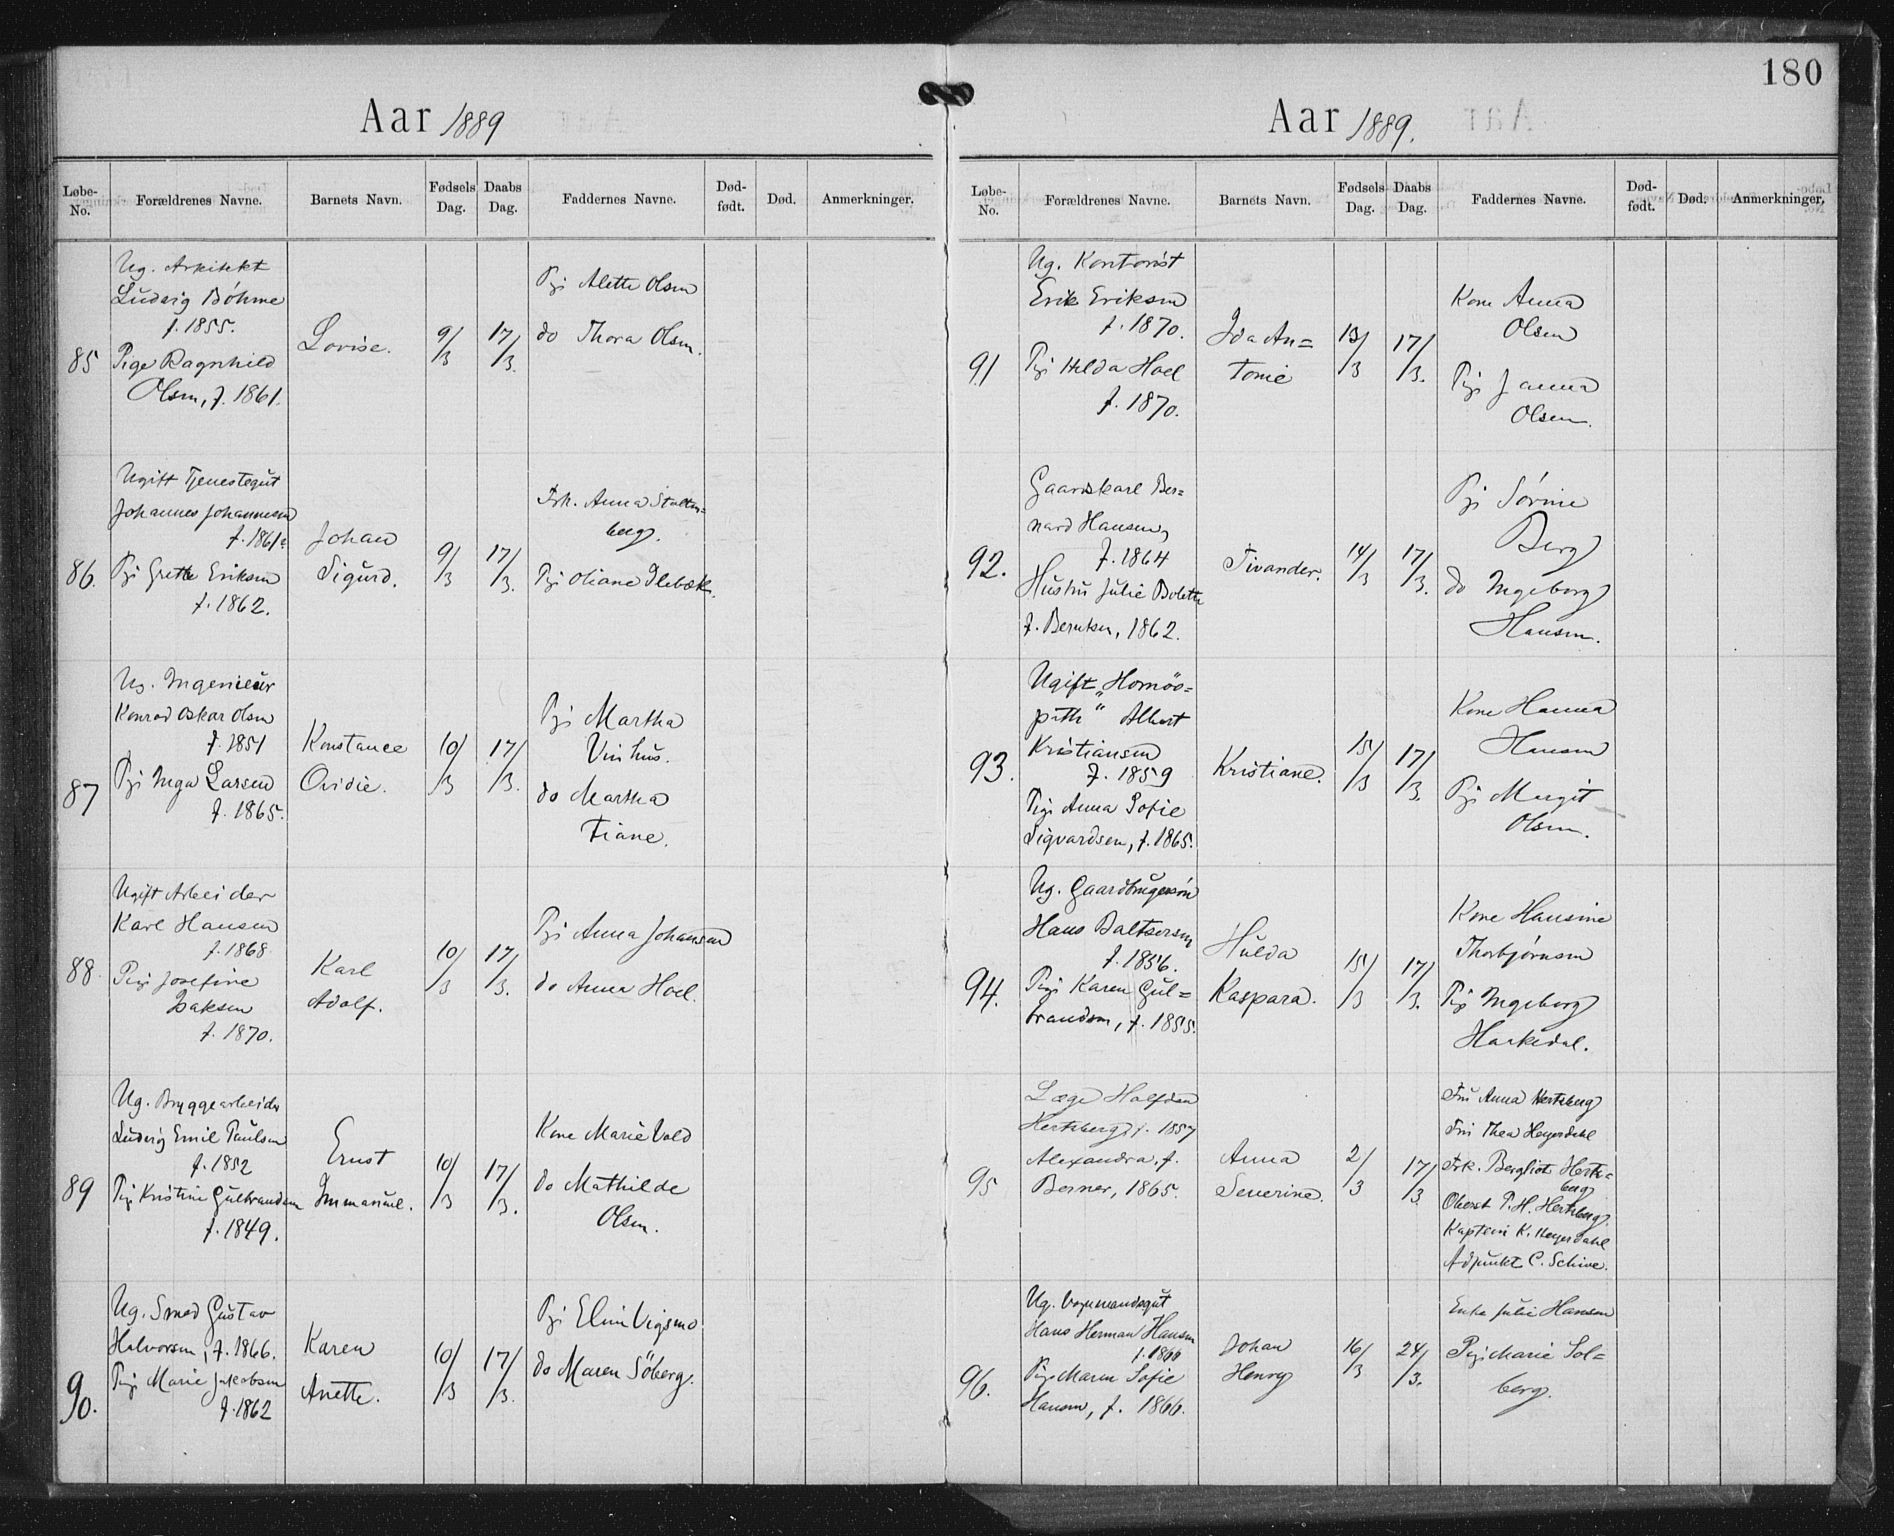 180
Aar 1889
Løbe-No. Forældrenes Navne. Barnets Navn. Fødsels Dag. Daabs Dag. Faddernes Navne. Død-født. Død. Anmerkninger.
85
Ug. Arkitekt
Ludvig Böhme
f. 1855.
Pige Ragnhild
Olsen, f. 1861.
Lovise.
9/3
17/3.
Pige Alette Olsen
do Thora Olsen.
86.
Ugift Tjenestegut
Johannes Johannesen
f. 1861.
Pige Grethe Eriksen
f. 1862.
Johan
Sigurd.
9/3
17/3.
Frk. Anna Stolten=
berg.
Pige Oliane Ilebæk.
87
Ug. Ingenieur
Konrad Oskar Olsen
f. 1851
Pige Inga Larsen
f. 1865.
Konstance
Ovidie.
10/3
17/3.
Pige Martha
Vinhus.
do Martha
Tiane.
88.
Ugift Arbeider
Karl Hansen
f. 1868
Pige Josefine
Isaksen
f. 1870.
Karl
Adolf.
10/3
17/3.
Pige Anna Johansen
do Anna Hoel.
89
Ug. Bryggearbeider
Ludvig Emil Paulsen
f. 1852
Pige Kristine Gulbrandsen
f. 1849.
Ernst
Immanuel.
10/3
17/3.
Kone Marie Vold
do Mathilde
Olsen.
90.
Ug. Smed Gustav
Halvorsen, f. 1866.
Pige Marie Jakobsen
f. 1862
Karen
Anette.
10/3
17/3.
Pige Elini Vigsmo
do Maren Söberg.
Aar 1889.
Løbe-No. Forældrenes Navne. Barnets Navn. Fødsels Dag. Daabs Dag. Faddernes Navne. Død-født. Død. Anmerkninger.
91
Ug. Kontorist
Erik Eriksen
f. 1870.
Pige Hilda Hoel
f. 1870.
Ida An=
tonie
13/3
17/3.
Kone Anna
Olsen
Pige Janna
Olsen.
92.
Gaardskarl Ber=
nard Hansen,
f. 1864
Hustru Julie Bolette
f. Berntsen, 1862.
Tivander.
14/3
17/3.
Pige Sørine
Berg
do Ingeborg
Hansen.
93.
Ugift "Homöo=
path" Albert
Kristiansen
f. 1859
Pige Anna Sofie
Sigvardsen, f. 1865.
Kristiane.
15/3
17/3.
Kone Hanna
Hansen
Pige Margit
Olsen.
94.
Ug. Gaardbrugersøn
Hans Baltsersen
f. 1856.
Pige Karen Gul=
brandsen, f. 1855.
Hulda
Kaspara.
15/3
17/3.
Kone Hansine
Thorbjørnsen
Pige Ingeborg
Hakedal.
95
Læge Halfdan
Hertzberg, f. 1857
Alexandra, f.
Berner, 1865.
Anna
Severine.
2/3
17/3
Fru Anna Hertzberg
Fru Thea Heyerdahl
Frk. Bergliot Hertz=
berg
Oberst P. H. Hertzberg.
Kaptein K. Heyerdahl
Adjunkt C. Schive.
96.
Ug. Vognmandsgut
Hans Herman Hansen
f. 1866
Pige Maren Sofie
Hansen, f. 1866.
Johan
Henry
16/3
24/3.
Enke Julie Hansen
Pige Marie Sol=
berg.